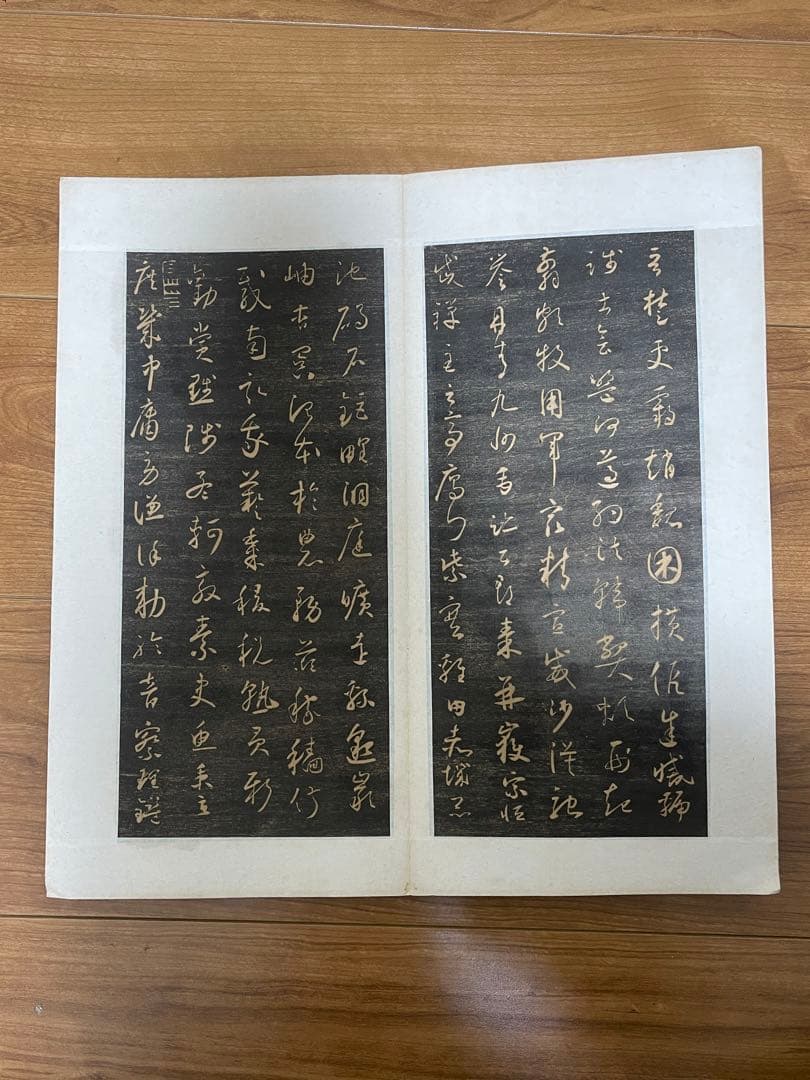 晉楚更霸趙魏困橫假途滅虢
踐土會盟何遵約法韓弊煩刑起
翦頗牧用軍最精宣威沙漠馳
譽丹青九州禹跡百郡秦并嶽宗恒
岱禪主云亭雁門紫塞雞田赤城昆
池碣石鉅野洞庭曠遠緜邈巖
岫杳冥治本於農務茲稼穡俶
載南畝我藝黍稷稅熟貢新
勸賞黜陟孟軻敦素史魚秉直
庶幾中庸勞謙謹勑聆音察理鑑